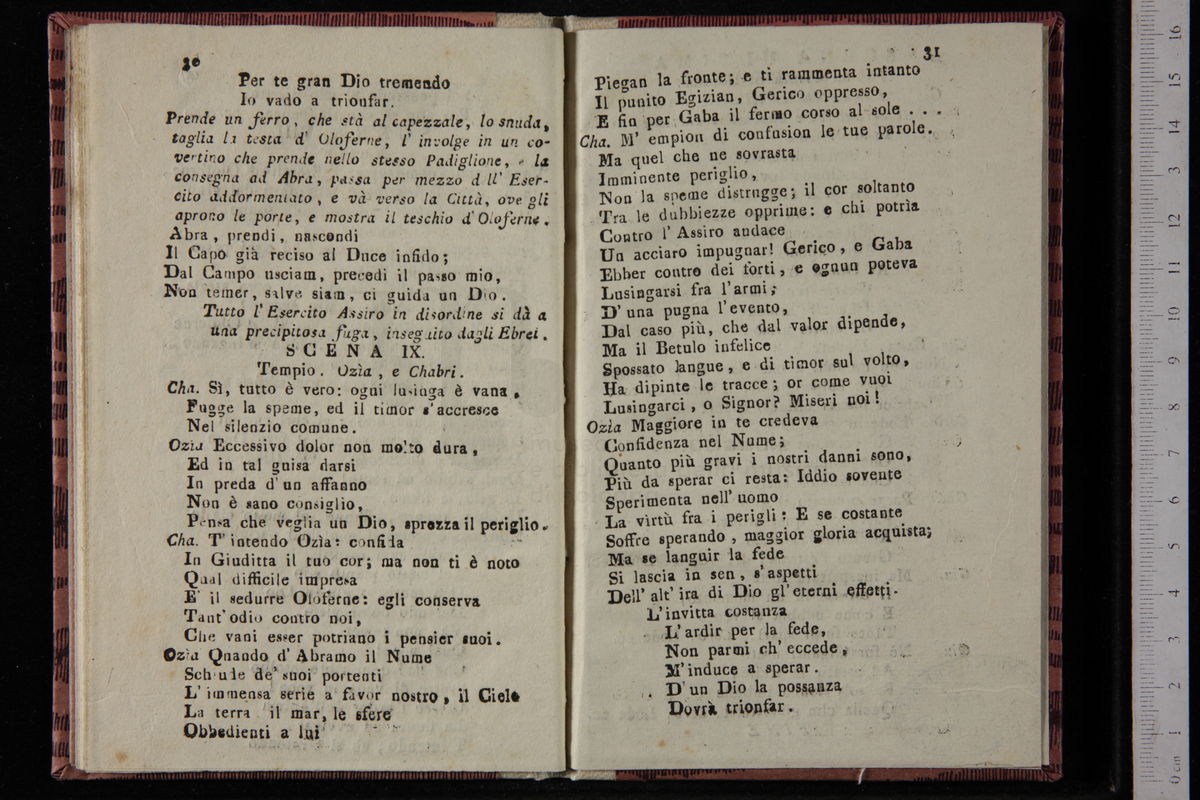 30
Per te gran Dio tremendo
Io vado a trionfar.
Prende un ferro, che stà al capezzale, lo snuda,
taglia la testa d' Oloferne, l' involge in un co-
vertino che prende nello stesso Padiglione, e la
consegna ad Abra, passa per mezzo dell' Eser-
cito addormentato, e và verso la Città, ove gli
aprono le porte, e mostra il teschio d' Oloferne.
Abra, prendi, nascondi
Il Capo già reciso al Duce infido;
Dal Campo usciam, precedi il passo mio,
Non temer, salve siam, ci guida un Dio.
Tutto l' Esercito Assiro in disordine si dà a
una precipitosa fuga, inseguito dagli Ebrei.
SCENA IX.
Tempio. Ozìa, e Chabri.
Cha. Sì, tutto è vero: ogni lusinga è vana,
Fugge la speme, ed il timor s'accresce
Nel silenzio comune.
Ozìa Eccessivo dolor non molto dura,
Ed in tal guisa darsi
In preda d' un affanno
Non è sano consiglio,
Pensa che veglia un Dio, sprezza il periglio.
Cha. T' intendo Ozìa: confida
In Giuditta il tuo cor; ma non ti è noto
Qual difficile impresa
E' il sedurre Oloferne: egli conserva
Tant' odio contro noi,
Che vani esser potriano i pensier suoi.
Ozìa Quando d' Abramo il Nume
Schiude de' suoi portenti
L' immensa serie a favor nostro, il Cielo
La terra il mar, le sfere
Obbedienti a lui
31
Piegan la fronte; e ti rammenta intanto
Il punito Egizian, Gerico oppresso,
E fin per Gaba il fermo corso al sole . . .
Cha. M' empion di confusion le tue parole.
Ma quel che ne sovrasta
Imminente periglio,
Non la speme distrugge; il cor soltanto
Tra le dubbiezze opprime: e chi potrìa
Contro l' Assiro audace
Un acciaro impugnar! Gerico, e Gaba
Ebber contro dei forti, e ognun poteva
Lusingarsi fra l'armi;
D' una pugna l'evento,
Dal caso più, che dal valor dipende,
Ma il Betulo infelice
Spossato langue, e di timor sul volto,
Ha dipinte le tracce; or come vuoi
Lusingarci, o Signor? Miseri noi!
Ozìa Maggiore in te credeva
Confidenza nel Nume;
Quanto più gravi i nostri danni sono,
Più da sperar ci resta: Iddio sovente
Sperimenta nell' uomo
La virtù fra i perigli: E se costante
Soffre sperando, maggior gloria acquista;
Ma se languir la fede
Si lascia in sen, s'aspetti
Dell' alt' ira di Dio gl' eterni effetti.
L'invitta costanza
L'ardir per la fede,
Non parmi ch' eccede,
M'induce a sperar.
D' un Dio la possanza
Dovrà trionfar.
0 cm 1 2 3 4 5 6 7 8 9 10 11 12 13 14 15 16